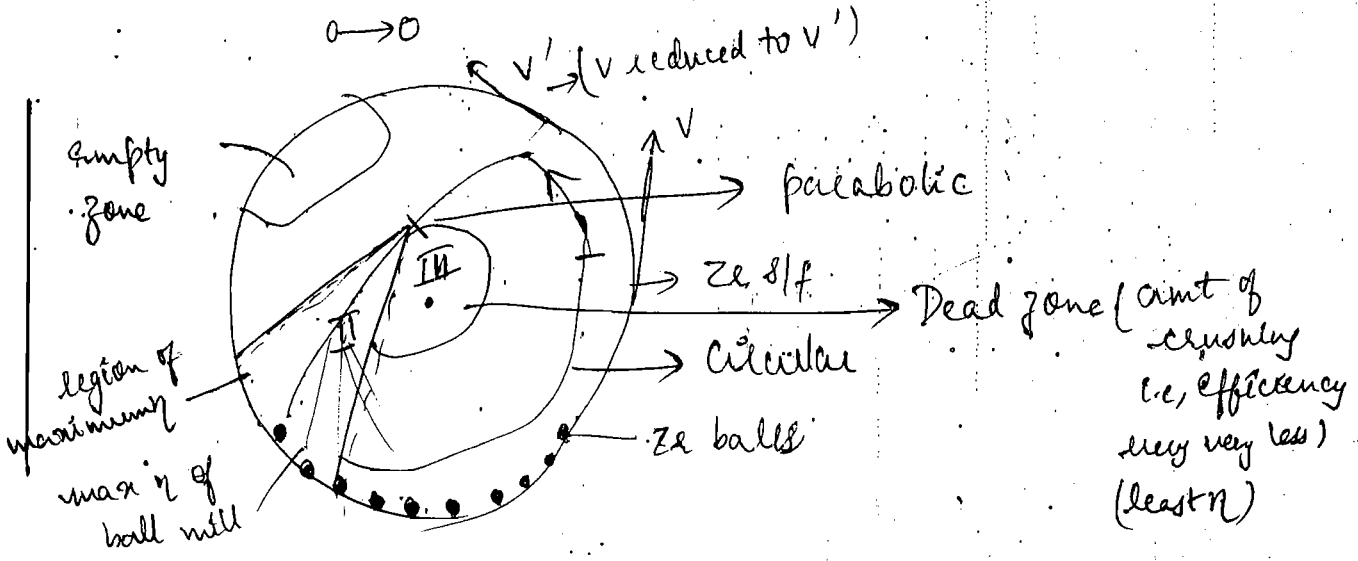 0 → 0
V' → (V reduced to V')
V
Empty
zone
parabolic
III
Zr s/f
Dead zone (amt of
crushing
i.e, efficiency
very very less)
(least η)
II
circular
region of
maximum η
Zr balls
max η of
ball mill